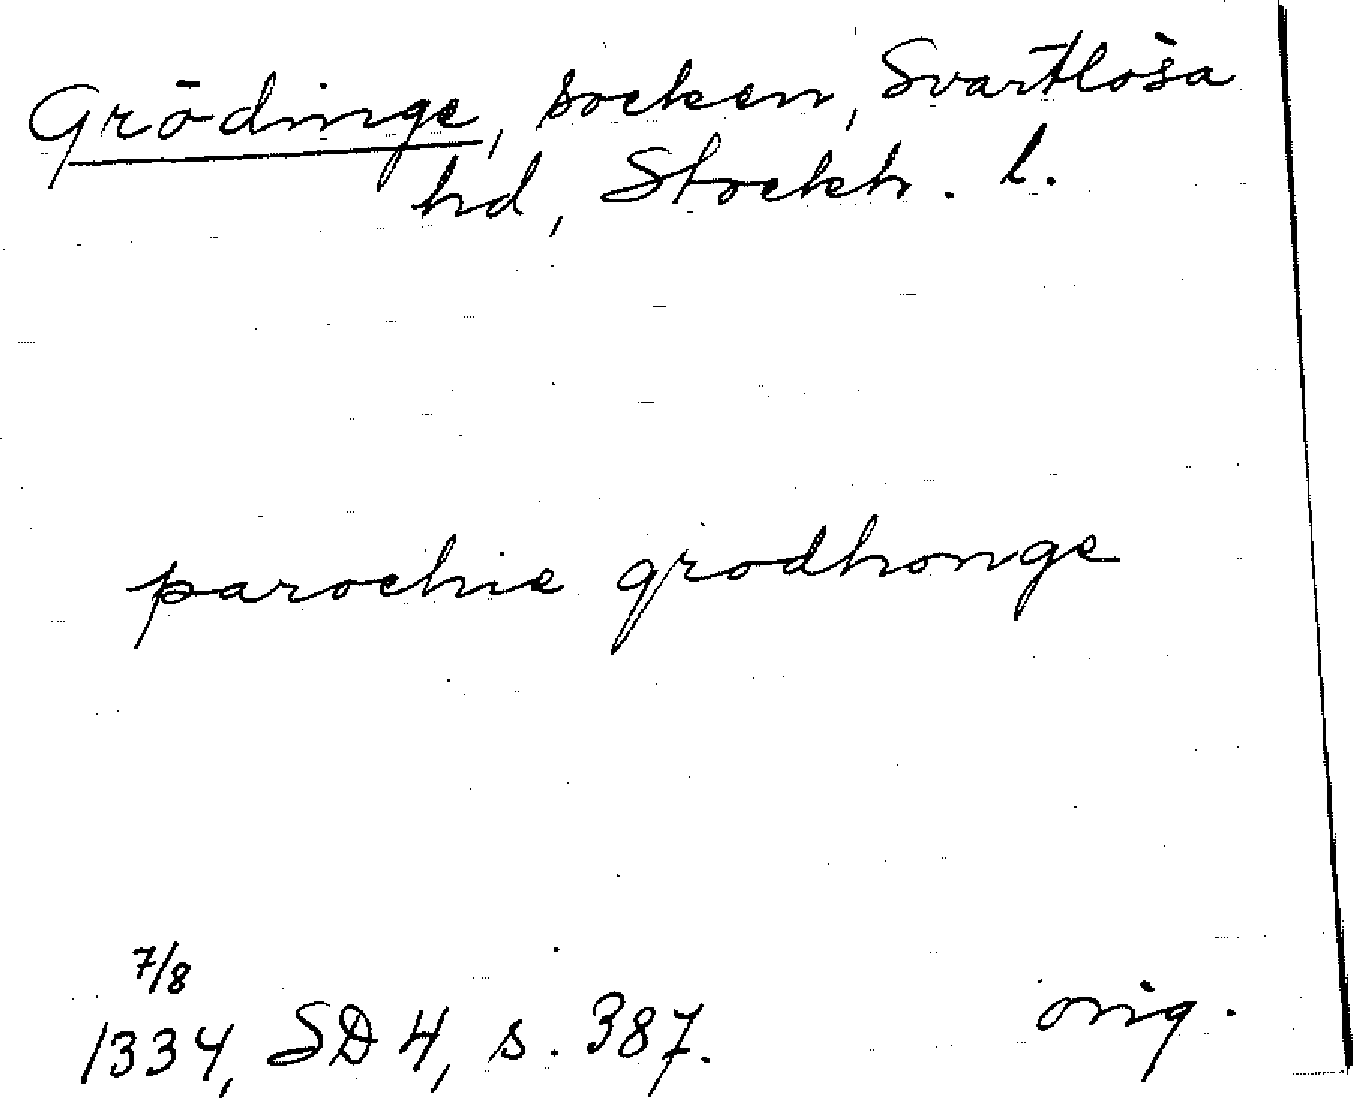 Grödinge, socken, Svartlösa
hd, Stockh. l.
parochie grodhonge
7/8
1334, SD 4, s. 387.
orig.